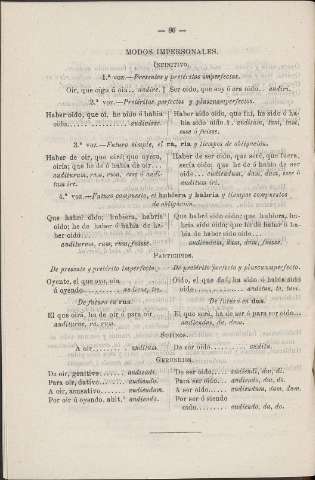 — 90 —
MODOS IMPERSONALES.
INFINITIVO.
1.ª voz.—Presentes y pretéritos imperfectos.
Oir, que oiga ú oia... audire. | Ser oido, que soy ó era oido. audiri.
2.ª voz.—Pretéritos perfectos y pluscuamperfectos.
Haber oido, que oí, he oido ó habia
oido. audivisse.
Haber sido oido, que fuí, he sido ó ha
bia sido oido. auditum, tam, tum,
esse ó fuisse.
3.ª voz.—Futuro simple, el ra, ria y tiempos de obligacion.
Haber de oir, que oiré; que oyera,
oiria; que he de ó habia de oir.
auditurum, ram, rum, esse ó audi-
tum ire.
Haber de ser oido, que seré, que fuera,
seria oido; que he de ó habia de ser
oido. audiendum, dam, dum, esse ó
auditum iri.
4.ª voz.—Futuro compuesto, el hubiera y habria y tiempos compuestos
de obligacion.
Que habré oido, hubiera, habria
oido; que he de ó habia de ha-
ber oido.
auditurum, ram, rum, fuisse.
Que habré sido oido; que hubiera, ha-
bria sido oido; que he de haber ó ha-
bia de haber sido oido.
audiendum, dam, dum, fuisse.
PARTICIPIOS.
De presente y pretérito imperfecto.
Oyente, el que oye, oia,
ú oyendo. audiens, tis.
De futuro en rus.
El que oirá, ha de oir ó para oir.
auditurus, ra, rum.
De pretérito perfecto y pluscuamperfecto.
Oido, el que fué, ha sido ó habia sido
oido. auditus, ta, tum.
De futuro en dus.
El que será, ha de ser ó para ser oido.
audiendus, da, dum.
SUPINOS.
A oir. auditum. | De ser oido. auditu.
GERUNDIOS.
De oir, genitivo. audiendi.
Para oir, dativo. audiendo.
A oir, acusativo. audiendum.
Por oir ú oyendo, ablt. audiendo.
De ser oido. audiendi, dæ, di.
Para ser oido. audiendo, dæ, do.
A ser oido. audiendum, dam, dum.
Por ser ó siendo
oido. audiendo, da, do.